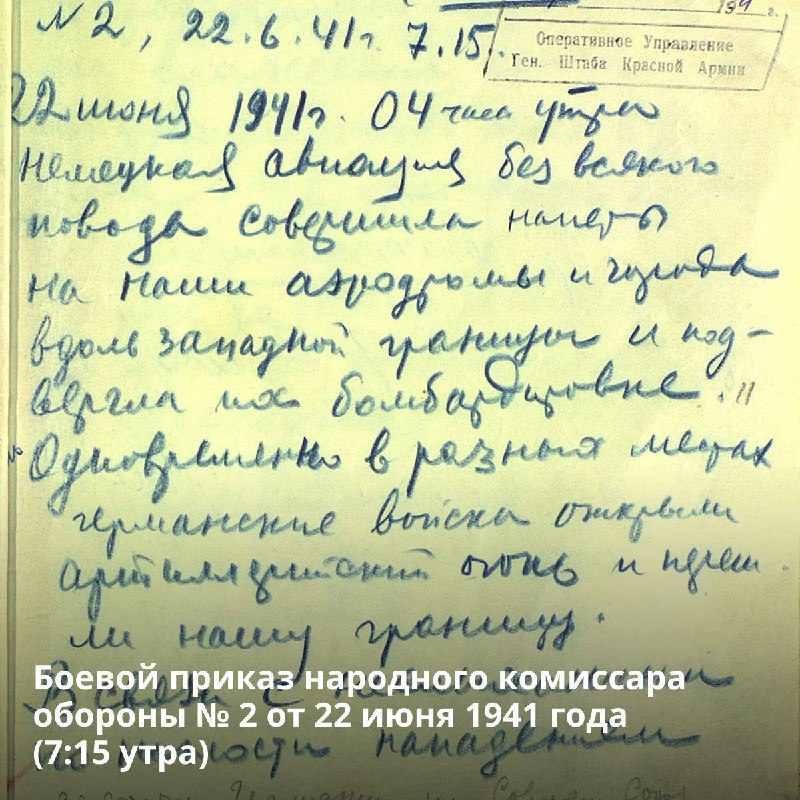 194 г.
Оперативное Управление
Ген. Штаба Красной Армии
№ 2, 22.6.41г. 7.15.
22 июня 1941г. 04 часа утра
немецкая авиация без всякого
повода совершила налеты
на наши аэродромы и города
вдоль западной границы и под-
вергла их бомбардировке.
Одновременно в разных местах
германские войска открыли
артиллерийский огонь и переш-
ли нашу границу.
В связи с
по наглости нападением
Германии на Советс Союз
Боевой приказ народного комиссара
обороны № 2 от 22 июня 1941 года
(7:15 утра)